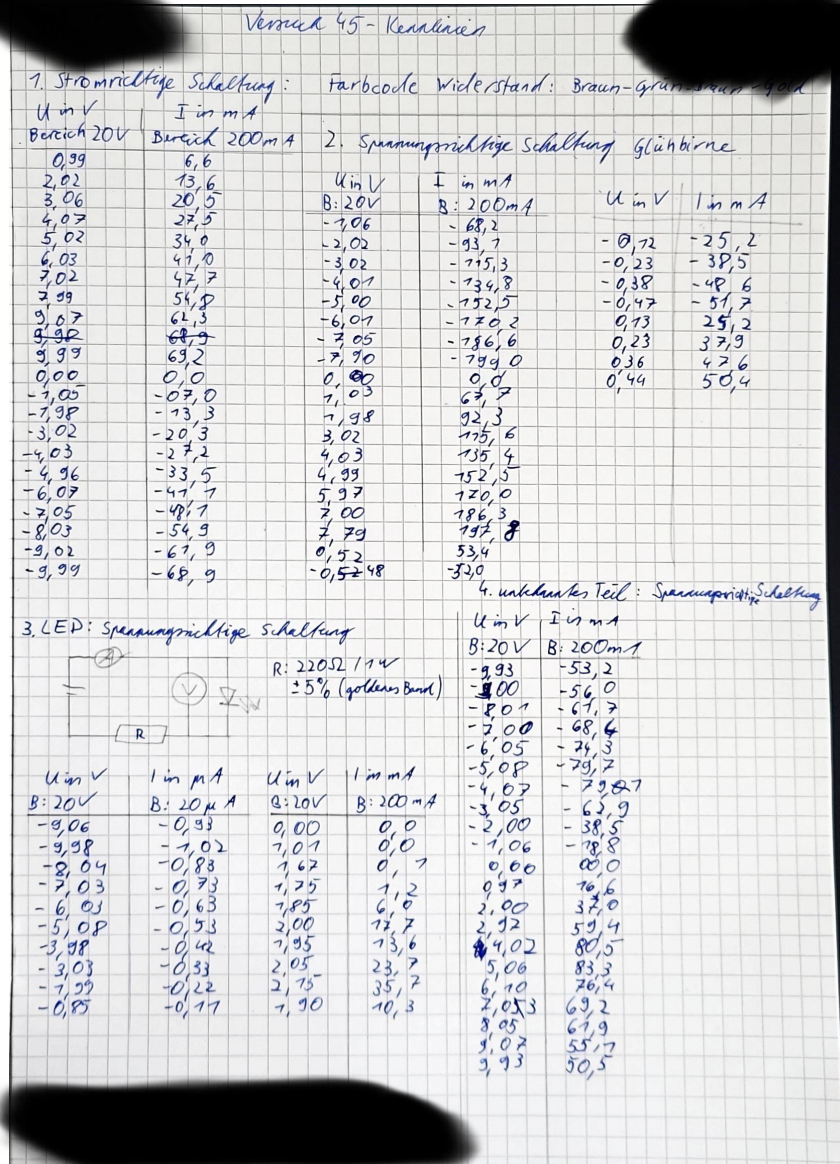 Versuch 45 - Kennlinien
1. Stromrichtige Schaltung: Farbcode Widerstand: Braun-Grün-Braun-Gold
U in V I in mA
Bereich 20V Bereich 200mA
0,99 6,6
2,02 13,6
3,06 20,5
4,07 27,5
5,02 34,0
6,03 41,0
7,02 47,7
7,99 54,8
9,07 62,3
9,98 68,9
9,99 69,2
0,00 0,0
-1,05 -07,0
-1,98 -13,3
-3,02 -20,3
-4,03 -27,2
-4,96 -33,5
-6,07 -41,1
-7,05 -48,1
-8,03 -54,9
-9,02 -61,9
-9,99 -68,9
2. Spannungsrichtige Schaltung Glühbirne
U in V I in mA
B: 20V B: 200mA
-1,06 -68,2
-2,02 -93,1
-3,02 -115,3
-4,01 -134,8
-5,00 -152,5
-6,01 -170,2
-7,05 -186,6
-7,90 -199,0
0,00 0,0
1,03 67,7
1,98 92,3
3,02 115,6
4,03 135,4
4,99 152,5
5,97 170,0
7,00 186,3
7,79 197,8
0,52 53,4
-0,52 48 -52,0
U in V I in mA
-0,12 -25,2
-0,23 -38,5
-0,38 -48 6
-0,47 -51,7
0,13 25,2
0,23 37,9
0,36 47,6
0,44 50,4
3. LED: Spannungsrichtige Schaltung
A
V
R
R: 220Ω / 1W
±5% (goldenes Band)
U in V I in μA
B: 20V B: 20μA
-9,06 -0,93
-9,98 -1,02
-8,04 -0,83
-7,03 -0,73
-6,03 -0,63
-5,08 -0,53
-3,98 -0,42
-3,03 -0,33
-1,99 -0,22
-0,85 -0,11
U in V I in mA
B: 20V B: 200mA
0,00 0,0
1,01 0,0
1,67 0,1
1,75 1,2
1,85 6,0
2,00 17,7
1,95 13,6
2,05 23,7
2,15 35,7
1,90 10,3
4. unbekanntes Teil: Spannungsrichtige Schaltung
U in V I in mA
B: 20V B: 200mA
-9,93 -53,2
-9,00 -56,0
-8,01 -61,7
-7,00 -68,4
-6,05 -74,3
-5,08 -79,7
-4,07
-3,05 -62,9
-2,00 -38,5
-1,06 -18,8
0,00 00,0
0,97 16,6
2,00 37,0
2,97 59,4
4,02 80,5
5,06 83,3
6,10 76,4
69,2
8,05 61,9
9,07 55,1
9,93 50,5